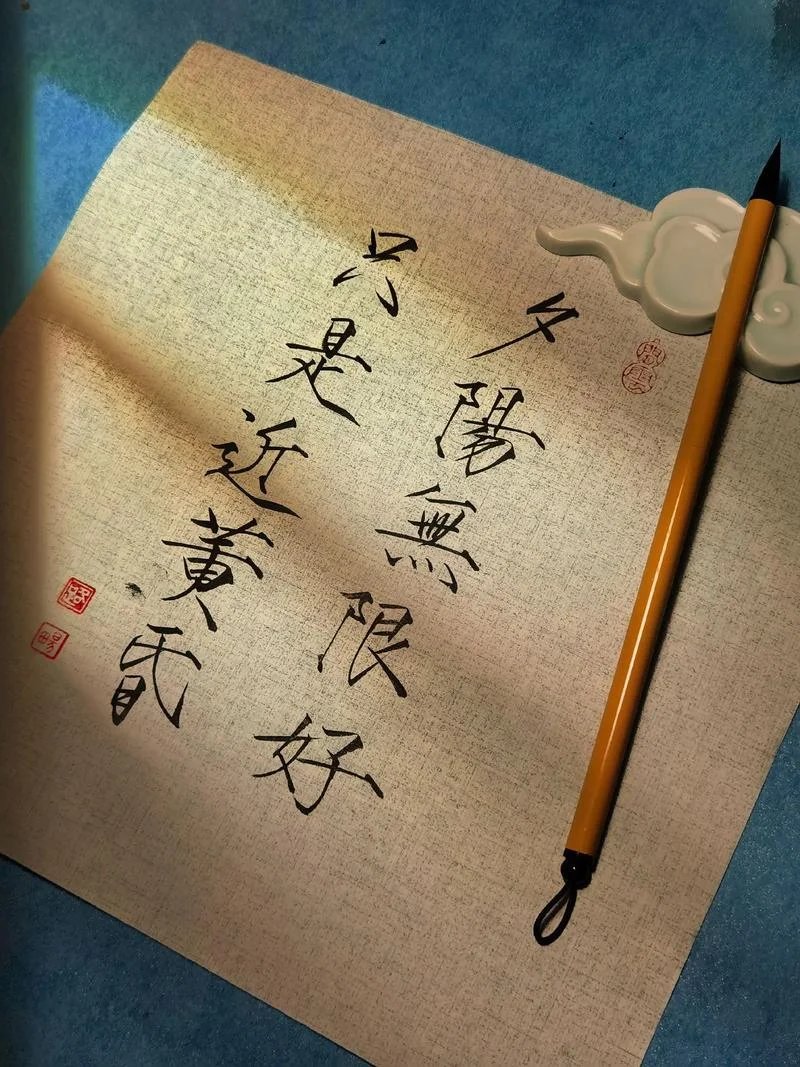 夕陽無限好
只是近黃昏